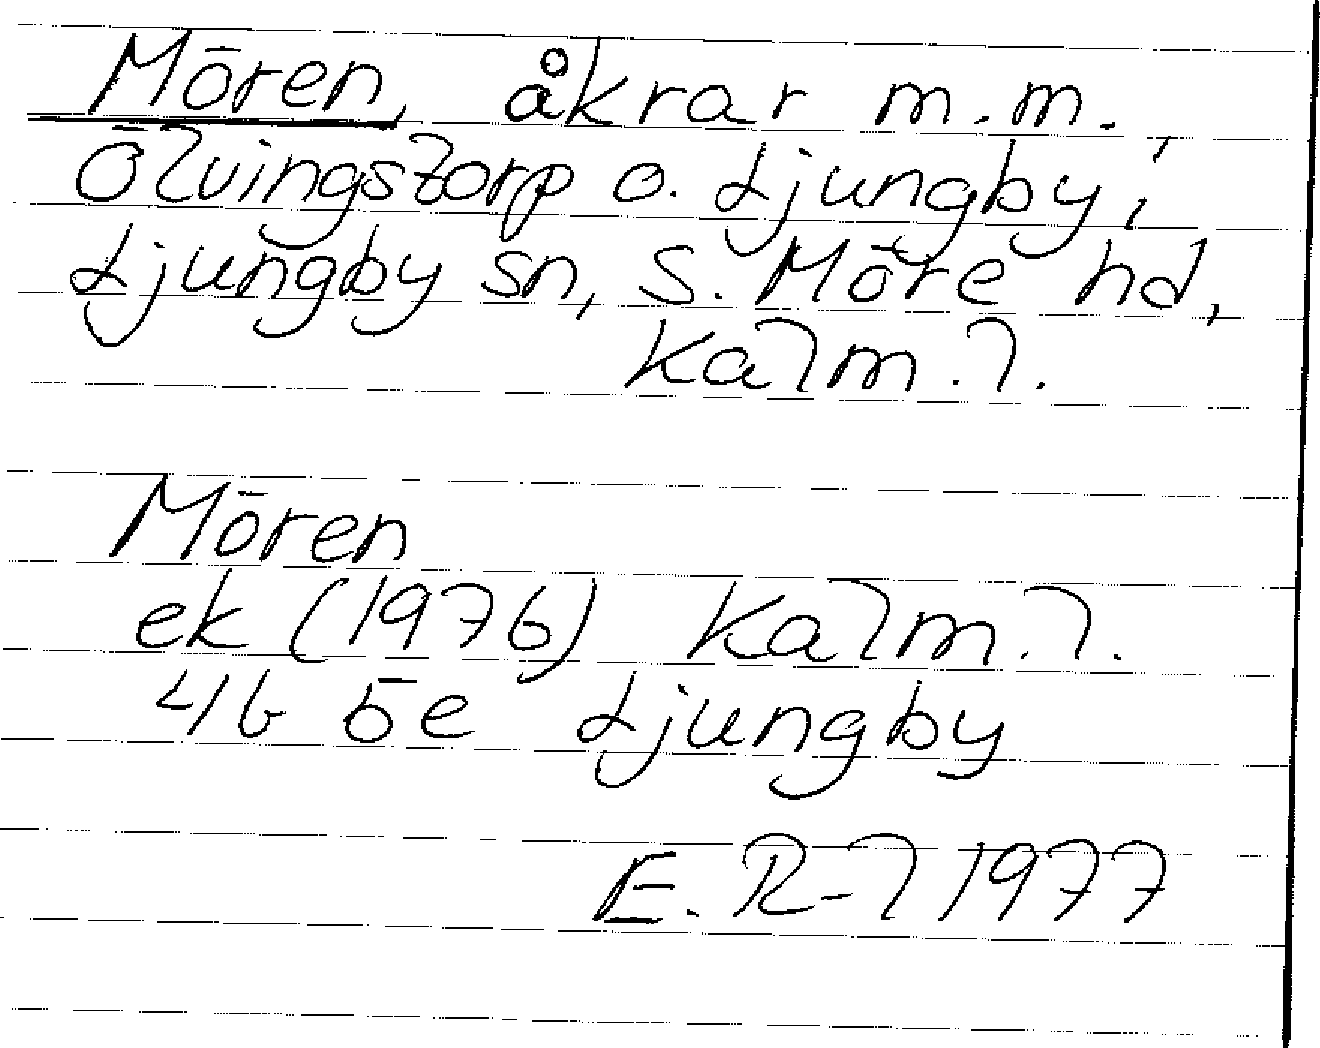 Mören, åkrar m.m.,
Ölvingstorp o. Ljungby,
Ljungby sn, S. Möre hd,
Kalm.l.
Mören
ek (1976) Kalm.l.
4G 5e Ljungby
E. R-l 1977